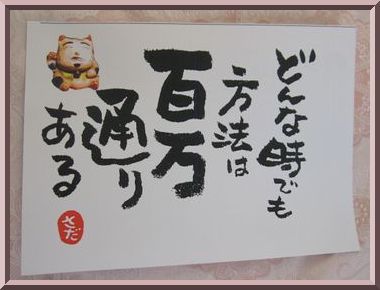 どんな時でも
方法は
百万
通り
ある
さだ